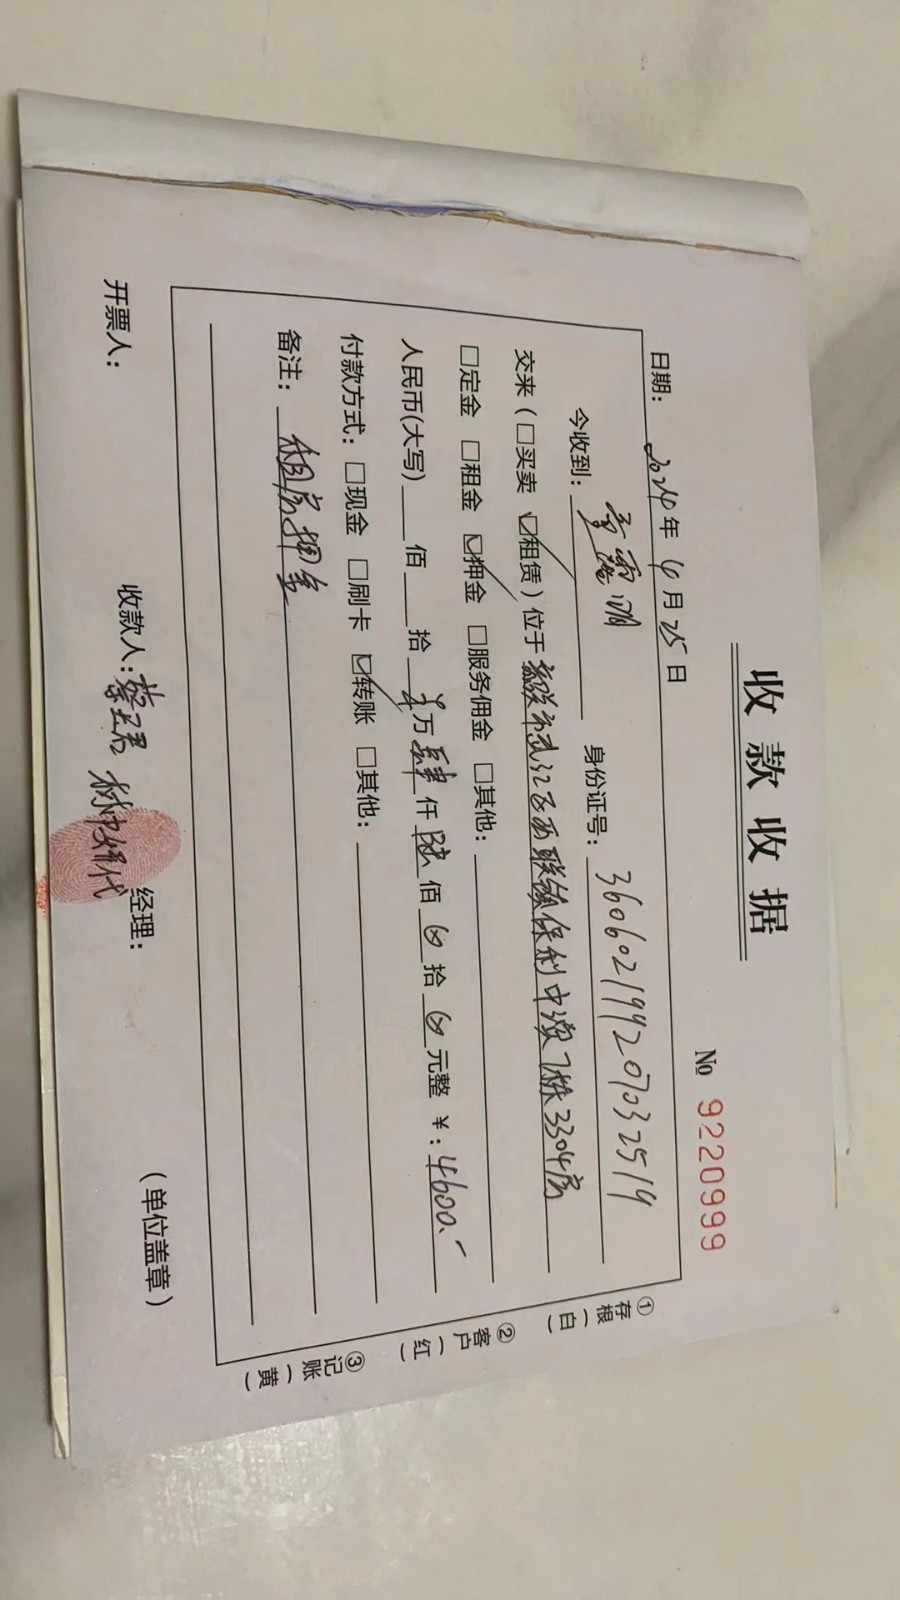 收款收据
№ 9220999
日期: 2024年4月25日
今收到: 身份证号: 360602199207032519
交来（□买卖 ☑租赁）位于 保利中 7栋3304房
□定金 □租金 ☑押金 □服务佣金 □其他:
人民币(大写) 佰 拾 万肆仟陆佰⊗拾⊗元整 ¥: 4600.-
付款方式: □现金 □刷卡 ☑转账 □其他:
备注: 租房押金
开票人: 收款人: 代 经理: (单位盖章)
①存根(白)
②客户(红)
③记账(黄)